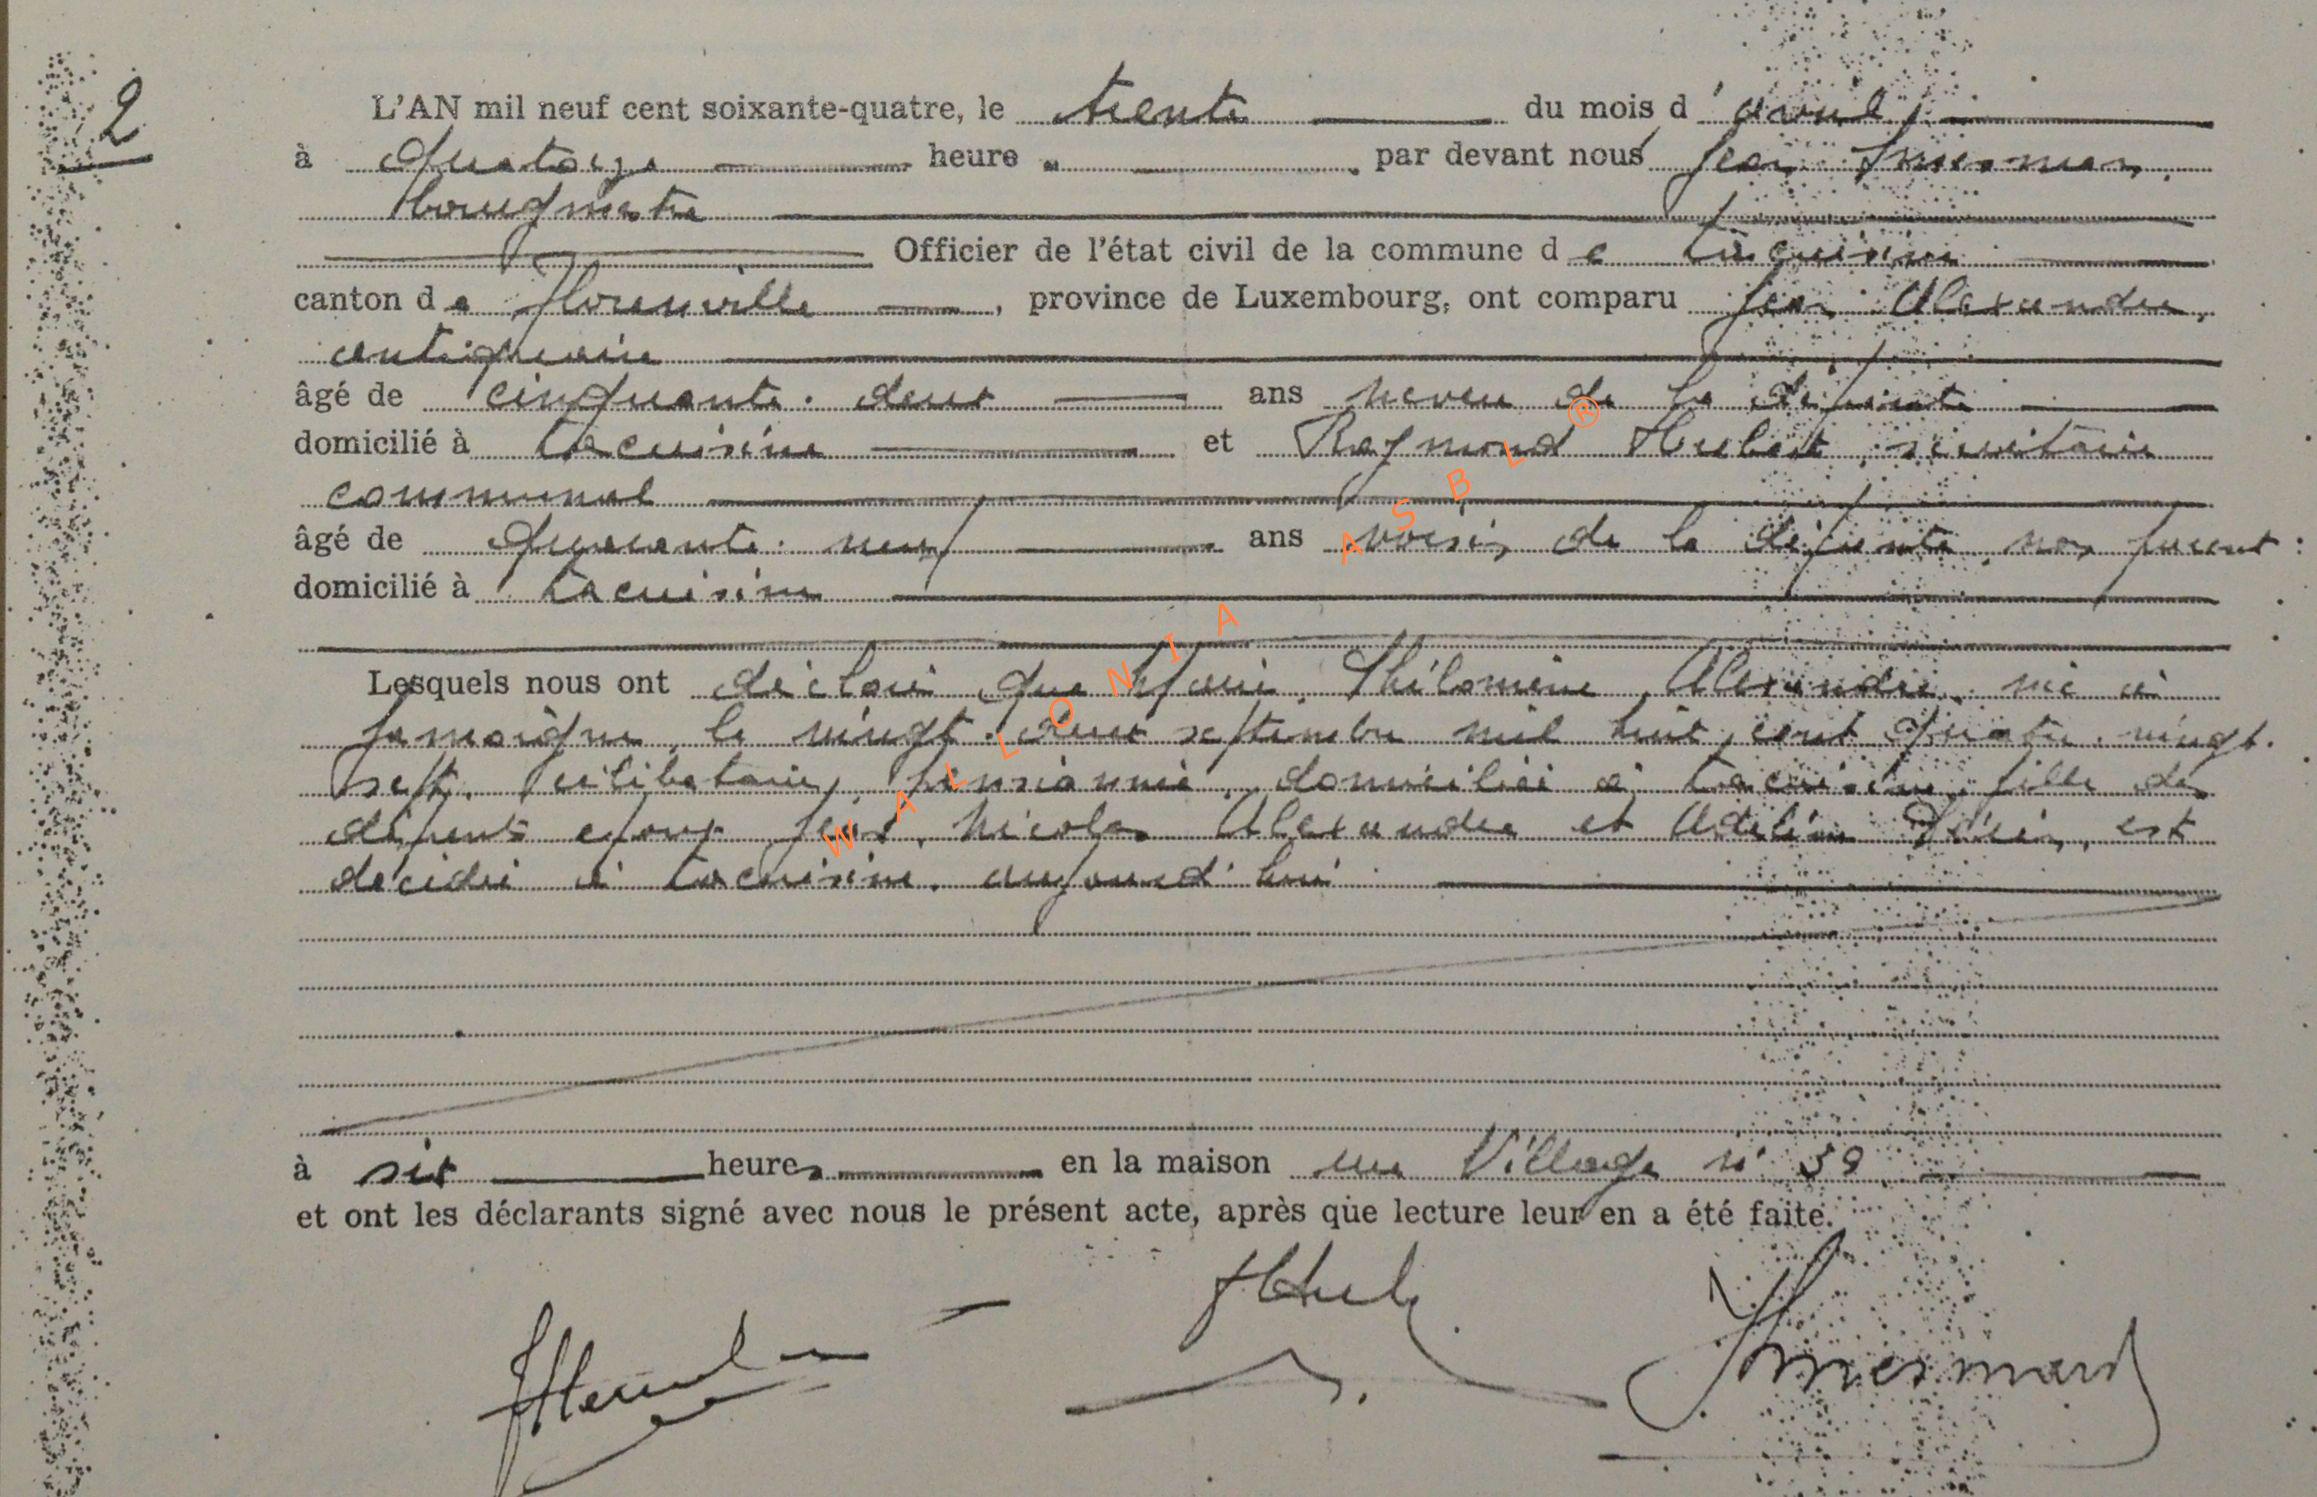 2
L'AN mil neuf cent soixante-quatre, le trente du mois d'avril,
à quatorze heure par devant nous Jean
bourgmestre
Officier de l'état civil de la commune de Lacuisine
canton de Florenville, province de Luxembourg, ont comparu Jean Alexandre,
antiquaire
âgé de cinquante-deux ans neveu de la défunte
domicilié à Lacuisine et Raymond Hubert, secrétaire
communal
âgé de quarante-neuf ans voisin de la défunte, non parent
domicilié à Lacuisine
Lesquels nous ont déclaré que Marie, Philomène Alexandre, née à
Jamoigne, le vingt-deux septembre mil huit cent quatre-vingt-
sept, célibataire, pensionnée, domiciliée à Lacuisine, fille des
défunts époux Jean, Nicolas Alexandre et est
décédée à Lacuisine, aujourd'hui
à six heures en la maison rue Village n°
et ont les déclarants signé avec nous le présent acte, après que lecture leur en a été faite.
WALLONIA ASBL ®